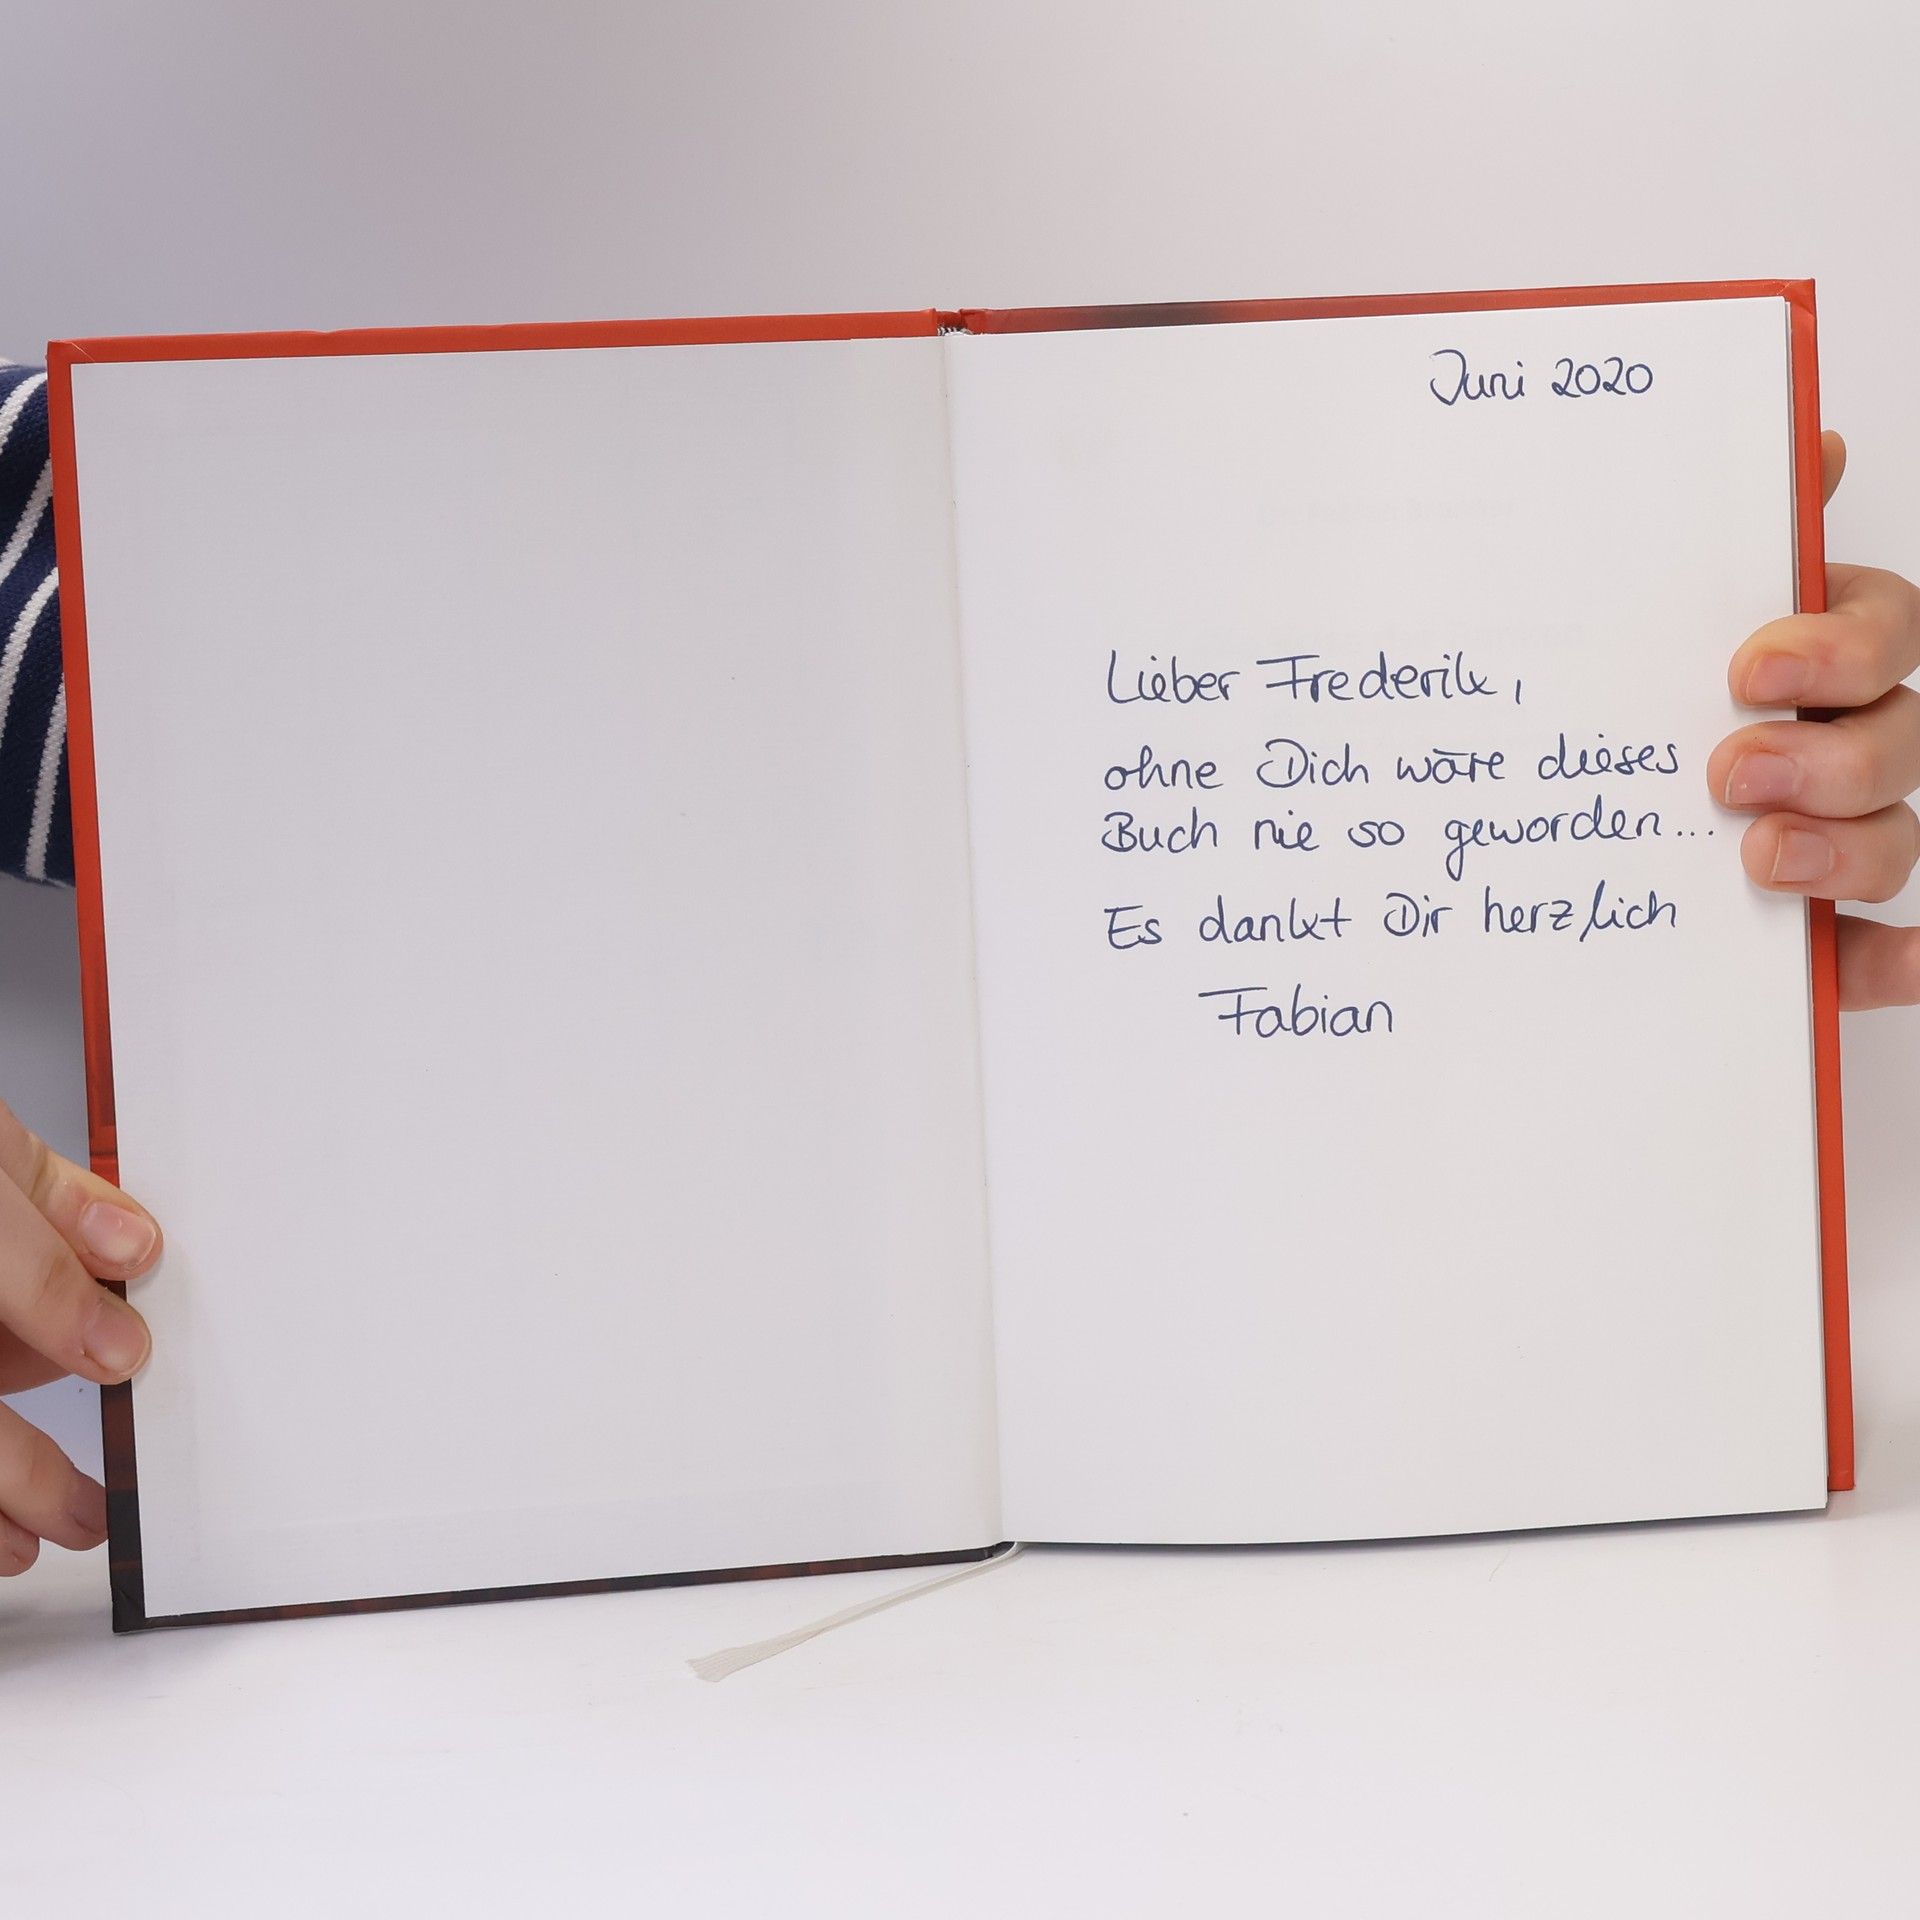 Juni 2020
Lieber Frederik,
ohne Dich wäre dieses
Buch nie so geworden...
Es dankt Dir herzlich
Fabian